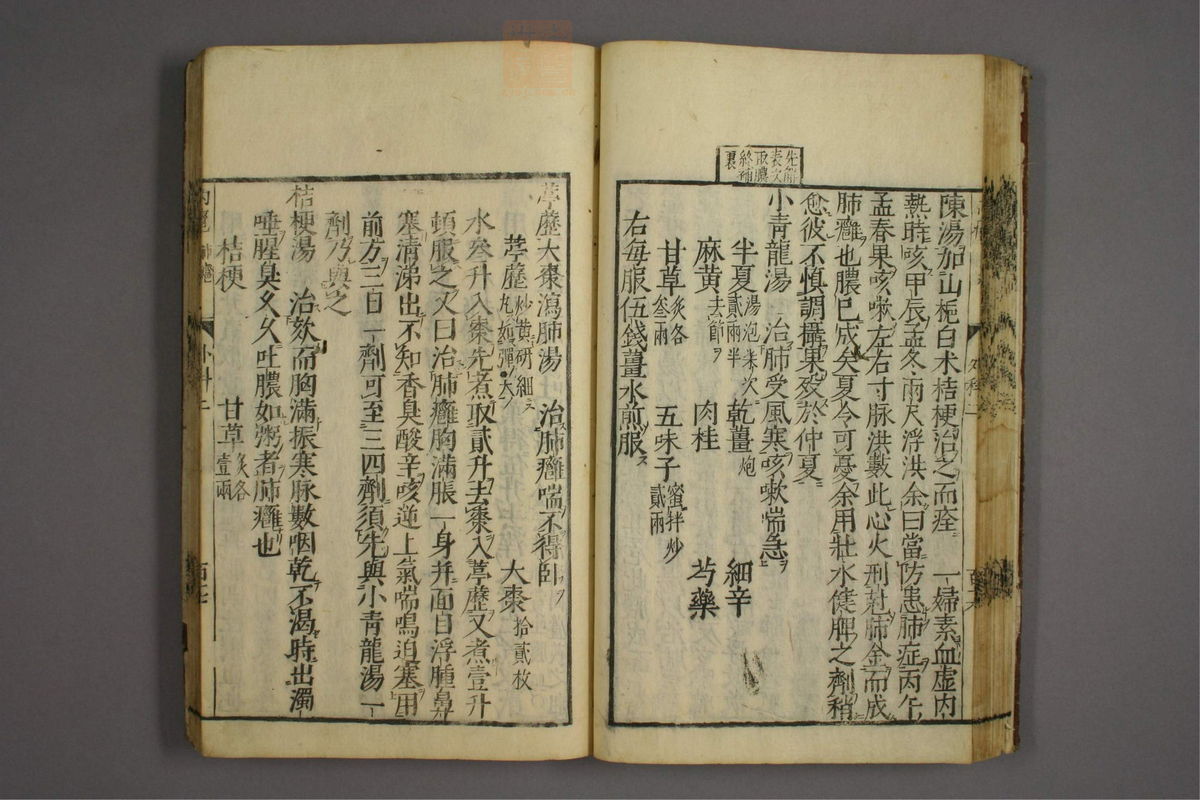 先解
表次
取膿
終補
裏
陳湯加山梔白朮桔梗治之而痊　一婦素血虛內
熱時咳甲辰孟冬兩尺浮洪余曰當防患肺症丙午
孟春果咳嗽左右寸脉洪數此心火刑尅肺金而成
肺癰也膿已成矣夏令可憂余用壯水健脾之劑稍
愈彼不慎調攝果歿於仲夏
小青龍湯　治肺受風寒咳嗽喘急
半夏湯泡柒次貳兩半　乾薑炮　細辛
麻黃去節　肉桂　芍藥
甘草炙各叁兩　五味子蜜拌炒貳兩
右每服伍錢薑水煎服
葶藶大棗瀉肺湯　治肺癰喘不得卧
葶藶炒黃研細丸如彈大　大棗拾貳枚
水叁升入棗先煮取貳升去棗入葶藶又煮壹升
頓服之又曰治肺癰胸滿脹一身并面目浮腫鼻
塞清涕出不知香臭酸辛咳逆上氣喘鳴迫塞用
前方三日一劑可至三四劑須先與小青龍湯一
劑乃與之
桔梗湯　治欬而胸滿振寒脉數咽乾不渴時出濁
唾腥臭久久吐膿如粥者肺癰也
桔梗　甘草炙各壹兩